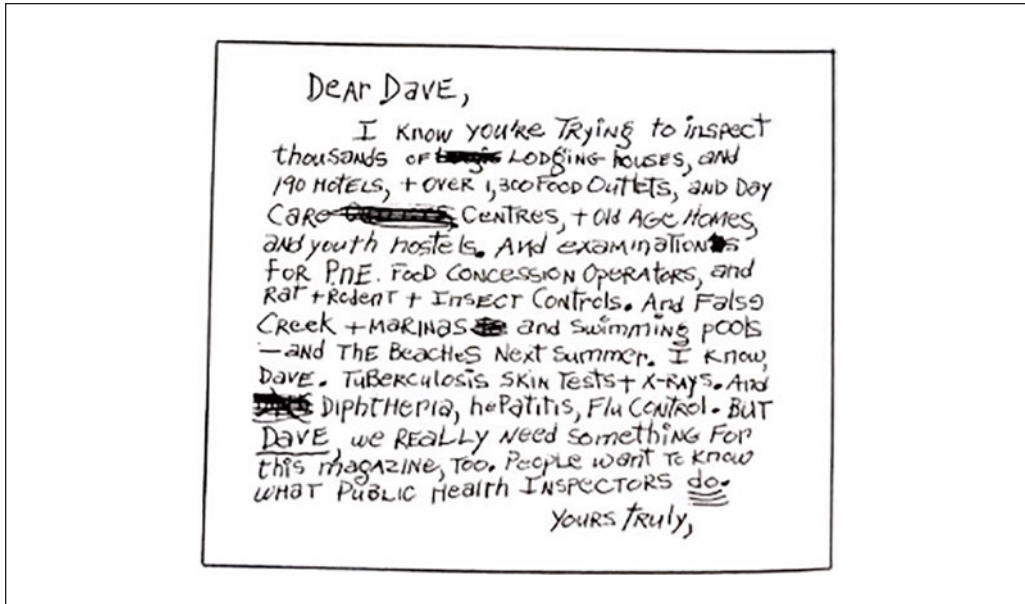 Dear Dave,
I know you're Trying to inspect
thousands of LODGING houses, and
190 HOTELS, + OVER 1,300 FOOD OUTLETS, AND DAY
CARE CENTRES, + Old AGE HOMES,
and youth hostels. And examinations
FOR P.N.E. FOOD CONCESSION OPERATORS, and
Rat + Rodent + INSECT Controls. And False
Creek + MARINAS and swimming pools
—and THE BEACHES NEXT Summer. I know,
DAVE. TUBERCULOSIS SKIN TESTS + X-RAYS. And
DIPHTHERIA, hePatitis, Flu CONTROL. BUT
DAVE, we REALLY NEED SOMETHING FOR
this magazine, TOO. People want to know
WHAT PUBLIC Health INSPECTORS do.
YOURS truly,